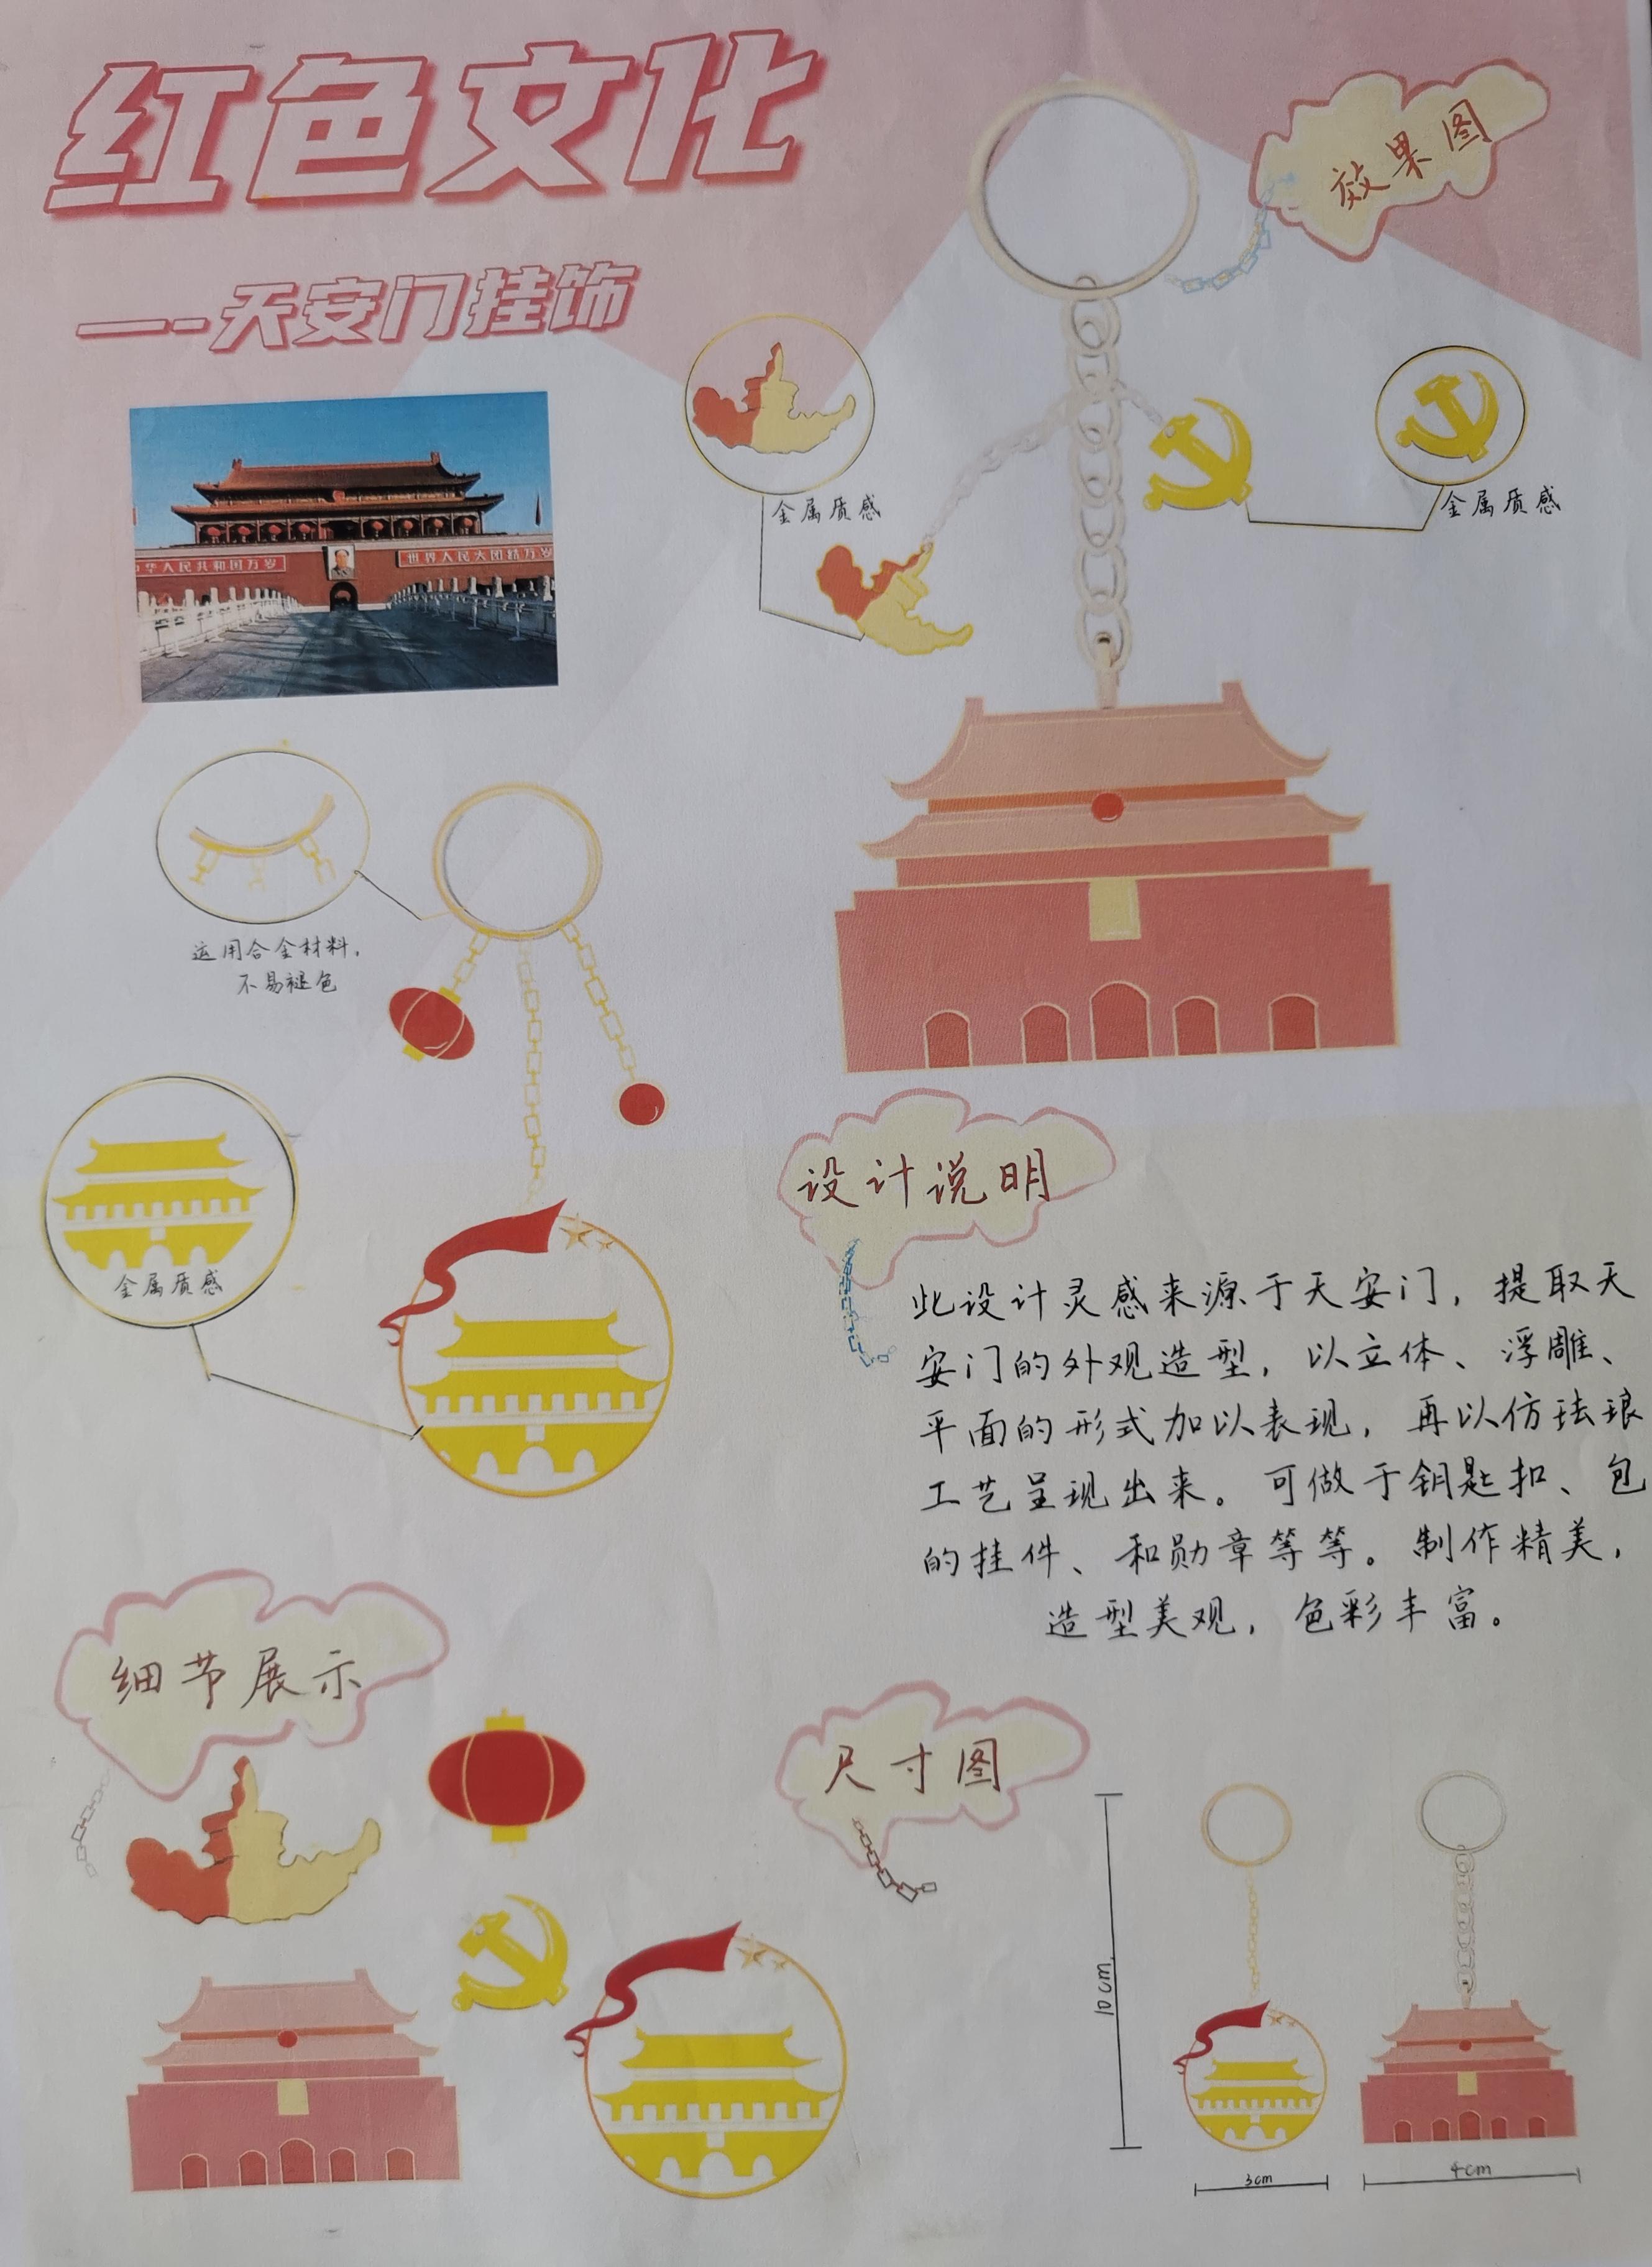 红色文化
效果图
——天安门挂饰
金属质感
金属质感
中华人民共和国万岁
世界人民大团结万岁
运用合金材料，
不易褪色
金属质感
设计说明
此设计灵感来源于天安门，提取天
安门的外观造型，以立体、浮雕、
平面的形式加以表现，再以仿珐琅
工艺呈现出来。可做于钥匙扣、包
的挂件、和勋章等等。制作精美，
造型美观，色彩丰富。
细节展示
尺寸图
10cm
3cm
4cm